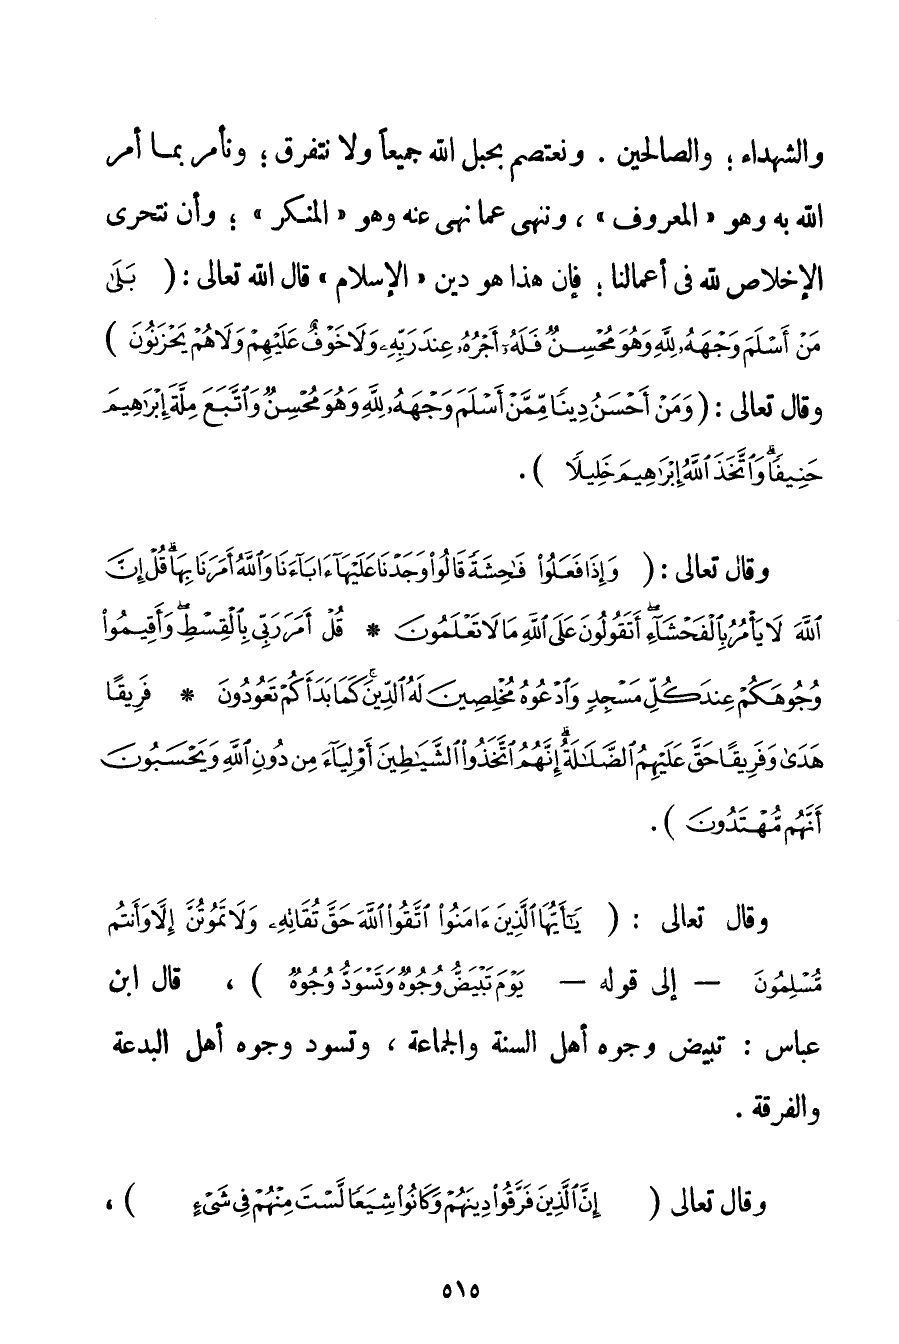 والشهداء ؛ والصالحين . ونعتصم بحبل الله جميعاً ولا نتفرق ؛ ونأمر بما أمر
الله به وهو « المعروف » ، وننهى عما نهى عنه وهو « المنكر » ؛ وأن نتحرى
الإخلاص لله فى أعمالنا ؛ فإن هذا هو دين « الإسلام » قال الله تعالى : ( بَلَىٰ
مَنْ أَسْلَمَ وَجْهَهُۥ لِلَّهِ وَهُوَ مُحْسِنٌ فَلَهُۥٓ أَجْرُهُۥ عِندَ رَبِّهِۦ وَلَا خَوْفٌ عَلَيْهِمْ وَلَا هُمْ يَحْزَنُونَ )
وقال تعالى : ( وَمَنْ أَحْسَنُ دِينًا مِّمَّنْ أَسْلَمَ وَجْهَهُۥ لِلَّهِ وَهُوَ مُحْسِنٌ وَٱتَّبَعَ مِلَّةَ إِبْرَٰهِيمَ
حَنِيفًا ۗ وَٱتَّخَذَ ٱللَّهُ إِبْرَٰهِيمَ خَلِيلًا ) .
وقال تعالى : ( وَإِذَا فَعَلُوا۟ فَٰحِشَةً قَالُوا۟ وَجَدْنَا عَلَيْهَآ ءَابَآءَنَا وَٱللَّهُ أَمَرَنَا بِهَا ۗ قُلْ إِنَّ
ٱللَّهَ لَا يَأْمُرُ بِٱلْفَحْشَآءِ ۖ أَتَقُولُونَ عَلَى ٱللَّهِ مَا لَا تَعْلَمُونَ * قُلْ أَمَرَ رَبِّى بِٱلْقِسْطِ ۖ وَأَقِيمُوا۟
وُجُوهَكُمْ عِندَ كُلِّ مَسْجِدٍ وَٱدْعُوهُ مُخْلِصِينَ لَهُ ٱلدِّينَ ۚ كَمَا بَدَأَكُمْ تَعُودُونَ * فَرِيقًا
هَدَىٰ وَفَرِيقًا حَقَّ عَلَيْهِمُ ٱلضَّلَٰلَةُ ۗ إِنَّهُمُ ٱتَّخَذُوا۟ ٱلشَّيَٰطِينَ أَوْلِيَآءَ مِن دُونِ ٱللَّهِ وَيَحْسَبُونَ
أَنَّهُم مُّهْتَدُونَ ) .
وقال تعالى : ( يَٰٓأَيُّهَا ٱلَّذِينَ ءَامَنُوا۟ ٱتَّقُوا۟ ٱللَّهَ حَقَّ تُقَاتِهِۦ وَلَا تَمُوتُنَّ إِلَّا وَأَنتُم
مُّسْلِمُونَ — إلى قوله — يَوْمَ تَبْيَضُّ وُجُوهٌ وَتَسْوَدُّ وُجُوهٌ ) ، قال ابن
عباس : تبيض وجوه أهل السنة والجماعة ، وتسود وجوه أهل البدعة
والفرقة .
وقال تعالى ( إِنَّ ٱلَّذِينَ فَرَّقُوا۟ دِينَهُمْ وَكَانُوا۟ شِيَعًا لَّسْتَ مِنْهُمْ فِى شَىْءٍ ) ،
٥١٥